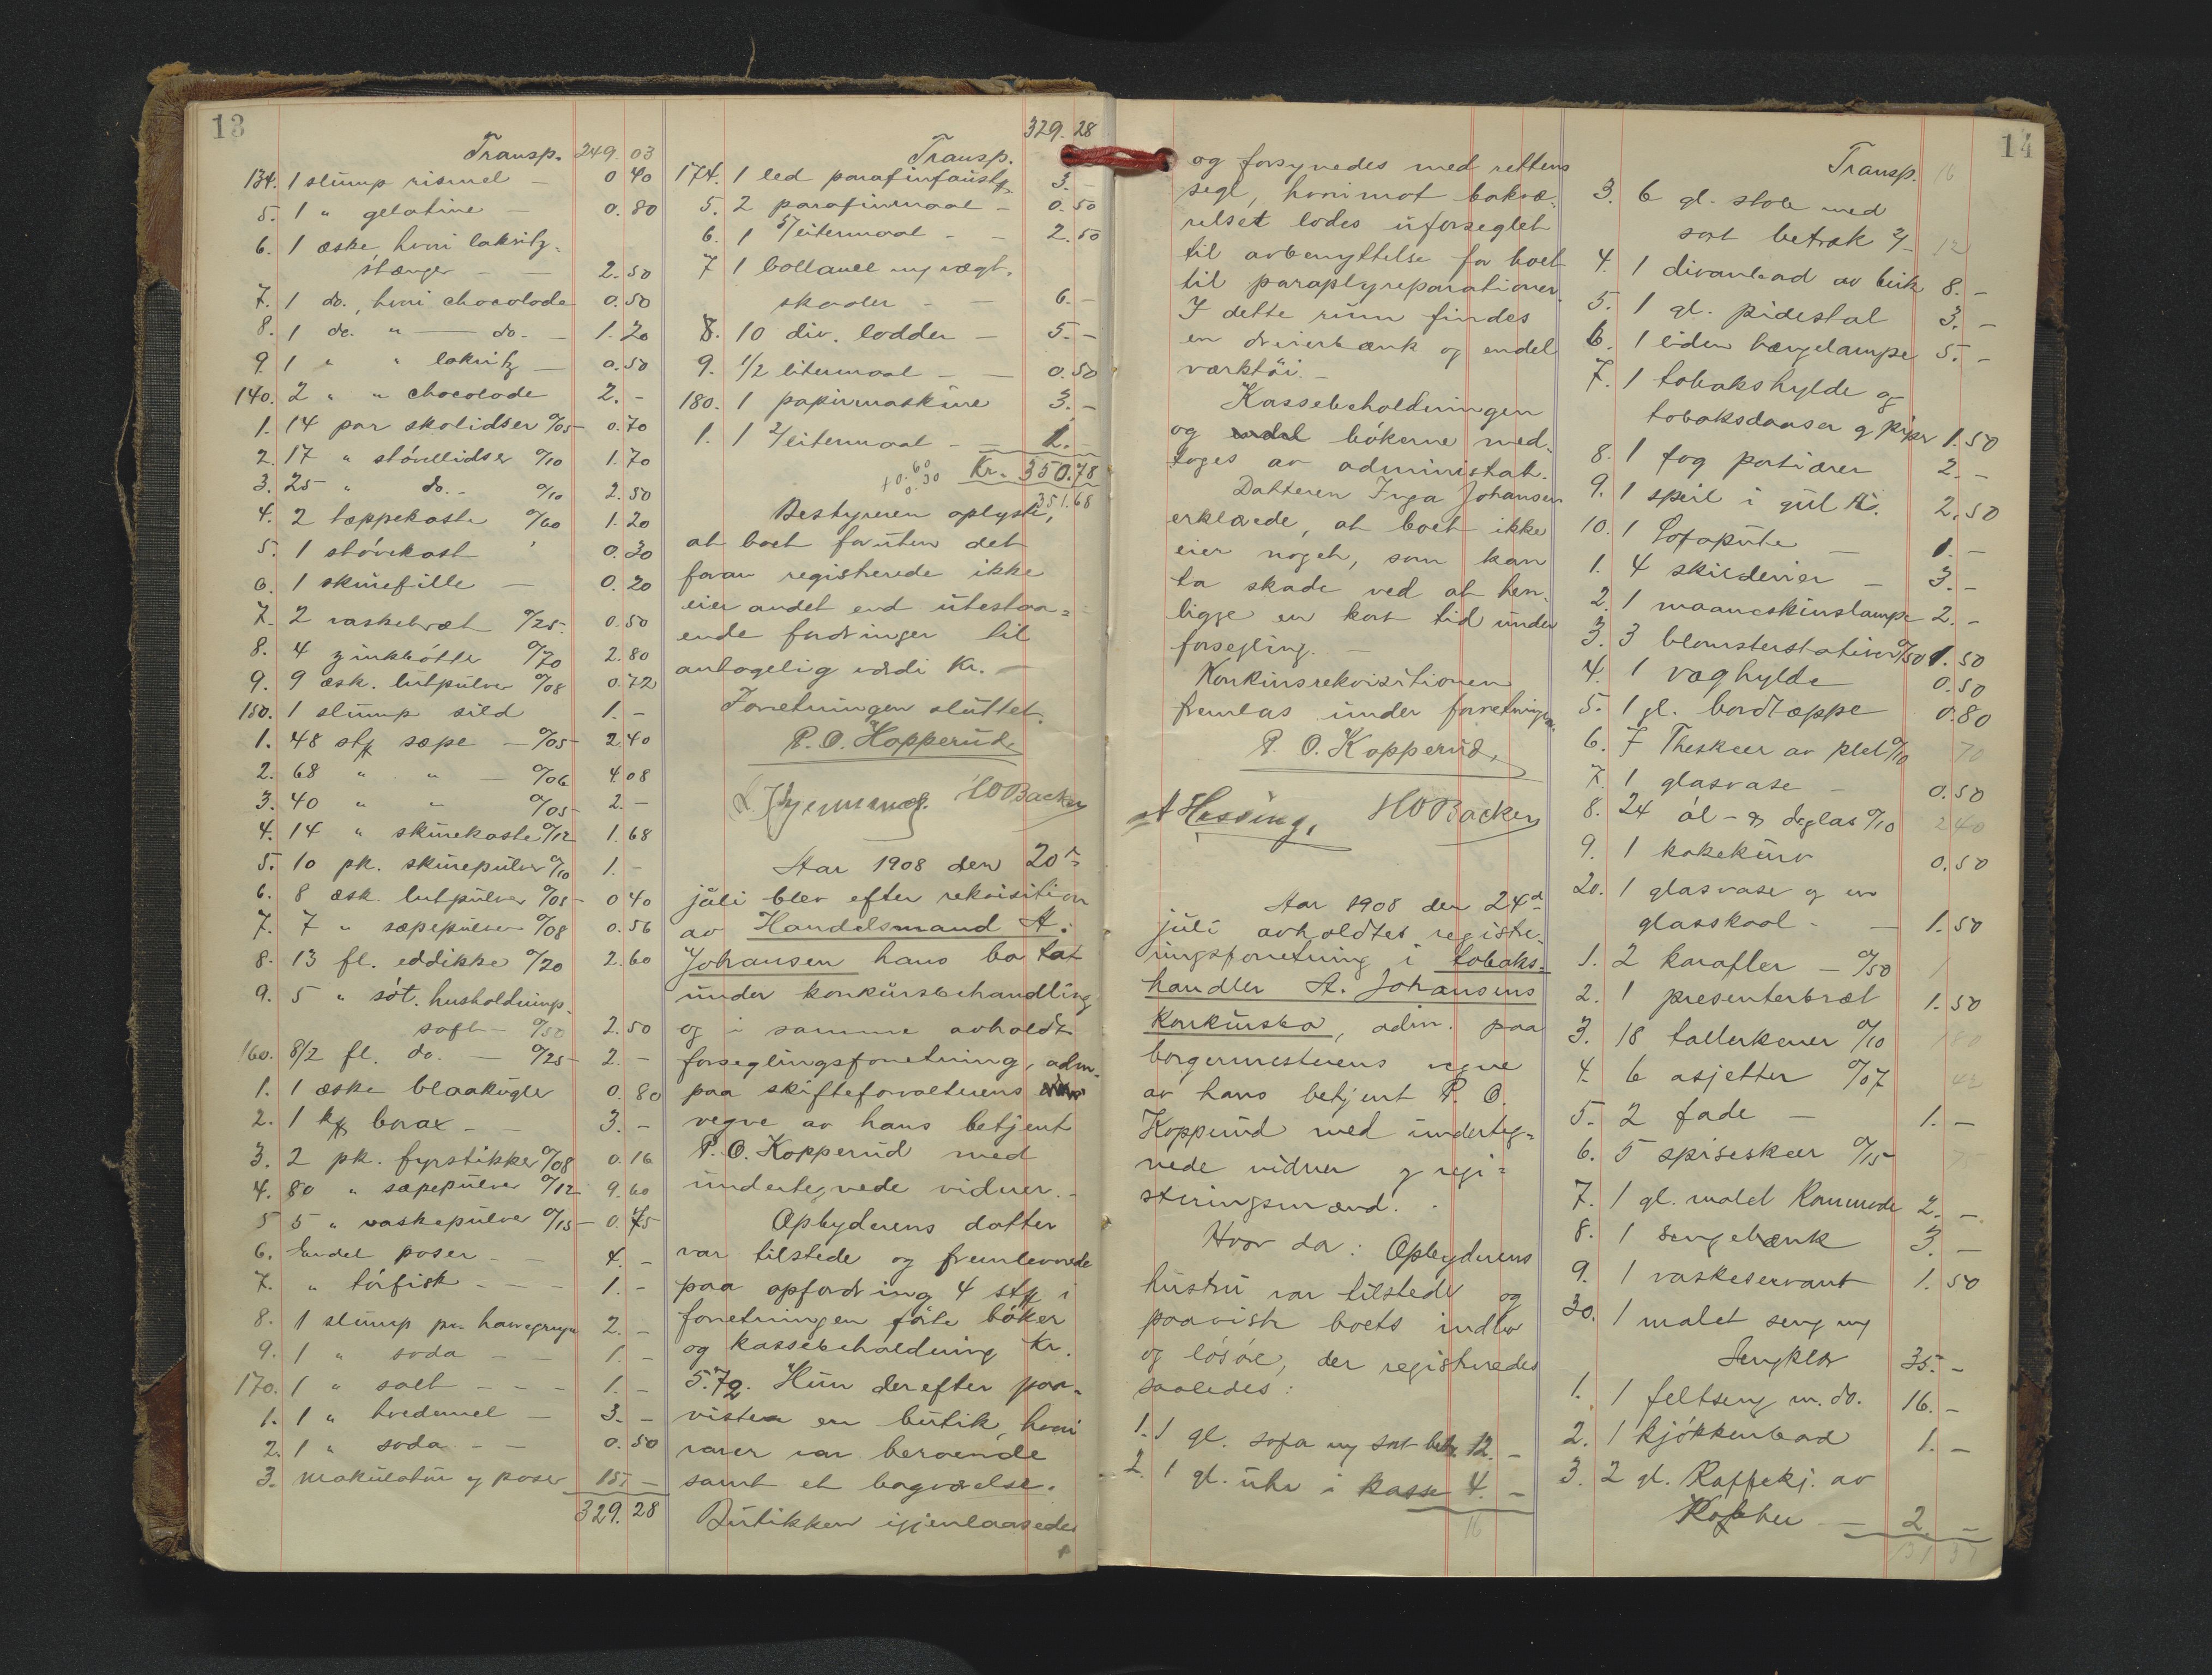 13
Transp. 249. 03
134. 1 slump rismel — 0 40
5. 1 " gelatine — 0. 80
6. 1 æske hvori lakritz-
stænger — — 2. 50
7. 1 do., hvori chocolade 0. 50
8. 1 do. " — do. — 1. 20
9. 1 " " lakritz — 0. 50
140. 2 " " chocolade 2. -
1. 14 par skolidser %05 - 0. 70
2. 17 " støvellidser %10 1. 70
3. 25 " do. - %10 2. 50
4. 2 tæppekoste %60 1. 20
5. 1 støvekost 0. 30
6. 1 skurefille — 0. 20
7. 2 vaskebræt %25. 0. 50
8. 4 zinkbøtter %70 2. 80
9. 9 æsk. lutpulver %08 0. 72
150. 1 slump sild 1. -
1. 48 stk sæpe — %05 - 2. 40
2. 68 " " — %06 4. 08
3. 40 " " %05 - 2. -
4. 14 " skurekoste %12 1. 68
5. 10 pk. skurepulver %10 1. -
6. 8 æsk. lutpulver %05 - 0 40
7. 7 " sæpepulver %08 0. 56
8. 13 fl. eddikke %20 2. 60
9. 5 " søt. husholdnings-
saft - %50 2. 50
160. 8/2 fl. do. — %25 - 2. -
1. 1 æske blaakugler 0. 80
2. 1 kg borax - - 3. -
3. 2 pk. fyrstikker %08 0. 16
4. 80 " sæpepulver %12 9. 60
5 5 " vaskepulver %15 - 0. 75
6. Endel poser - 4. -
7. " tørfisk - - - 1. -
8. 1 slump pr. havregryn 2. -
9. 1 " soda - - 1. -
170. 1 " salt - - - 1. -
1. 1 " hvedemel - 3. -
2. 1 " soda - - 0. 50
3. makulatur og poser 15. -
329. 28
329. 28
Transp.
174. 1 led parafinfaustg 3. -
5. 2 parafinmaal - 0. 50
6. 1 5/litermaal - - 2. 50
7 1 bollance mg vægt-
skaaler - - 6. -
8. 10 div. lodder - 5. -
9. 1/2 litermaal - - 0. 50
180. 1 papirmaskine 3. -
1. 1 2/litermaal - - 1. -
Kr. 350. 78
+ 0. 60
0. 30
351. 68
Bestyreren oplyste,
at boet foruten det
foran registrerede ikke
eier andet end utestaa=
ende fordringer til
antagelig værdi Kr. —
Forretningen sluttet.
P. O. Kopperud.
HOBacker
Aar 1908 den 20de
juli blev efter rekvisition
av Handelsmand A.
Johansen hans bo tat
under konkursbehandling
og i samme avholdt
forseglingsforretning, adm.
paa skifteforvalterens
vegne av hans betjent
P. O. Kopperud med
undertegnede vidner. -
Opbyderens datter
var tilstede og fremleverede
paa opfordring 4 stk i
forretningen førte bøker
og kassebeholdning Kr.
5.72. Hun derefter paa-
viste en butik, hvori
varer var beroende
samt et bagværelse.
Butikken igjenlaasedes
14
og forsynedes med rettens
segl, hvorimot bakvæ-
relset lodes uforseglet
til avbenyttelse for boet
til paraplyreparationer.
I dette rum findes
en dreierbænk og endel
værktøi. -
Kassebeholdningen
og endel bøkerne med-
toges av administrat.
Datteren Inga Johansen
erklærede, at boet ikke
eier noget, som kan
ta skade ved at hen-
ligge en kort tid under
forsegling. -
Konkursrekvisitionen
fremlas under forretningen.
P. O. Kopperud.
A Hessing, HOBacker
Aar 1908 den 24de
juli avholdtes registre-
ringsforretning i tobaks-
handler A. Johansens
konkursbo, adm. paa
borgermesterens vegne
av hans betjent P. O.
Kopperud med underteg=
nede vidner og regi=
streringsmænd.
Hvor da: Opbyderens
hustru var tilstede og
paaviste boets indbo
og løsøre, der registreredes
saaledes:
1. 1 gl. sofa mg sort betr. 12. -
2. 1 gl. uhr i kasse 4. -
16
Transp. 16
3. 6 gl. stole med
sort betræk 2/- 12
4. 1 divanbord av birk 8. -
5. 1 gl. pidestal 3. -
6. 1 liden hængelampe 5. -
7. 1 tobakshylde og
tobaksdaaser og piper 1. 50
8. 1 fag portiærer 2. -
9. 1 speil i gul ra. 2. 50
10. 1 Sofapute — 1. -
1. 4 skilderier — 3. -
2. 1 maaneskinslampe 2. -
3. 3 blomsterstativer %50 1. 50
4. 1 væghylde 0. 50
5. 1 gl. bordtæppe 0. 80
6. 7 Theskeer av plet %10 70
7. 1 glasvase - 0. 50
8. 24 øl- & drglas %10 2 40
9. 1 kakekurv 0. 50
20. 1 glasvase og en
glasskaal - — 1. 50
1. 2 karafler - %50 1
2. 1 presenterbræt 1. 50
3. 18 tallerkener %10 1 80
4. 6 asjetter %07 42
5. 2 fade — 1. -
6. 5 spiseskeer %15 75
7. 1 gl. malet Kommode 2. -
8. 1 sengebænk 3. -
9. 1 vaskeservant 1. 50
30. 1 malet seng mg
Sengklær 35. -
1. 1 feltseng m. do. 16. -
2. 1 kjøkkenbord 1. -
3. 2 gl. Kaffekj. av
Kobber — 2 -
131 37